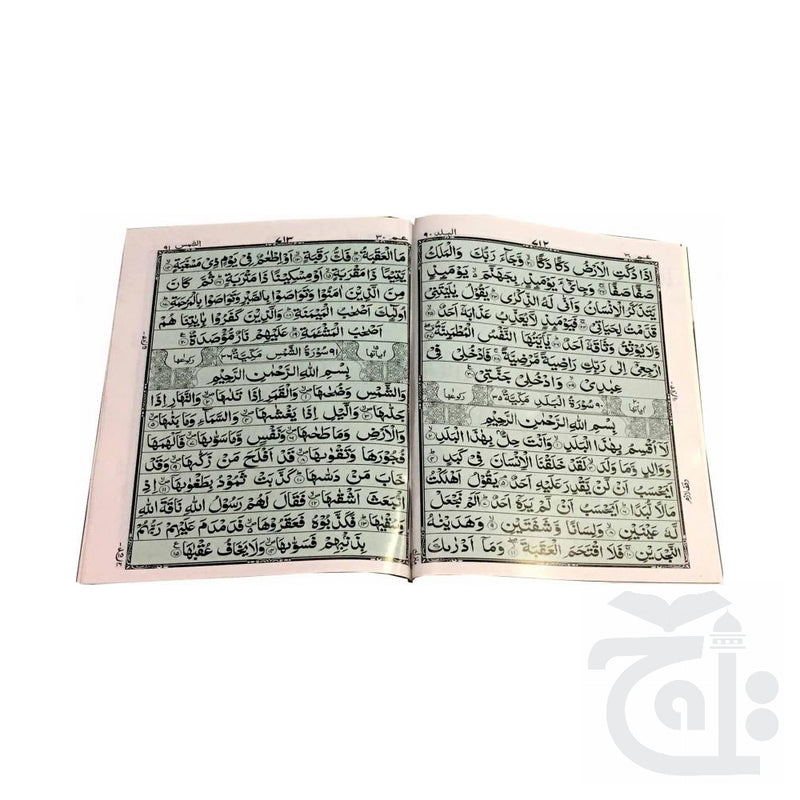 البلد ٩٠
٤١٢
عم ٣٠
اِذَا دُكَّتِ الْاَرْضُ دَكًّا دَكًّا وَّجَآءَ رَبُّكَ وَالْمَلَكُ
صَفًّا صَفًّا وَجِایْٓءَ یَوْمَىِٕذٍۭ بِجَهَنَّمَ یَوْمَىِٕذٍ
یَّتَذَكَّرُ الْاِنْسَانُ وَاَنّٰی لَهُ الذِّكْرٰی یَقُوْلُ یٰلَیْتَنِیْ
قَدَّمْتُ لِحَیَاتِیْ فَیَوْمَىِٕذٍ لَّا یُعَذِّبُ عَذَابَهٗۤ اَحَدٌ
وَّلَا یُوْثِقُ وَثَاقَهٗۤ اَحَدٌ یٰۤاَیَّتُهَا النَّفْسُ الْمُطْمَىِٕنَّةُ
ارْجِعِیْۤ اِلٰی رَبِّكِ رَاضِیَةً مَّرْضِیَّةً فَادْخُلِیْ فِیْ
عِبٰدِیْ وَادْخُلِیْ جَنَّتِیْ
اٰیاتها ٩٠ سُوْرَةُ الْبَلَدِ مَكِّیَّةٌ ٣٥ ركوعها
بِسْمِ اللّٰهِ الرَّحْمٰنِ الرَّحِیْمِ
لَاۤ اُقْسِمُ بِهٰذَا الْبَلَدِ وَاَنْتَ حِلٌّۢ بِهٰذَا الْبَلَدِ
وَوَالِدٍ وَّمَا وَلَدَ لَقَدْ خَلَقْنَا الْاِنْسَانَ فِیْ كَبَدٍ
اَیَحْسَبُ اَنْ لَّنْ یَّقْدِرَ عَلَیْهِ اَحَدٌ یَقُوْلُ اَهْلَكْتُ
مَالًا لُّبَدًا اَیَحْسَبُ اَنْ لَّمْ یَرَهٗۤ اَحَدٌ اَلَمْ نَجْعَلْ
لَّهٗ عَیْنَیْنِ وَلِسَانًا وَّشَفَتَیْنِ وَهَدَیْنٰهُ
النَّجْدَیْنِ فَلَا اقْتَحَمَ الْعَقَبَةَ وَمَاۤ اَدْرٰىكَ
عم ٣٠
٤١٣
الشمس ٩١
مَا الْعَقَبَةُ فَكُّ رَقَبَةٍ اَوْ اِطْعٰمٌ فِیْ یَوْمٍ ذِیْ مَسْغَبَةٍ
یَّتِیْمًا ذَا مَقْرَبَةٍ اَوْ مِسْكِیْنًا ذَا مَتْرَبَةٍ ثُمَّ كَانَ
مِنَ الَّذِیْنَ اٰمَنُوْا وَتَوَاصَوْا بِالصَّبْرِ وَتَوَاصَوْا بِالْمَرْحَمَةِ
اُولٰٓىِٕكَ اَصْحٰبُ الْمَیْمَنَةِ وَالَّذِیْنَ كَفَرُوْا بِاٰیٰتِنَا هُمْ
اَصْحٰبُ الْمَشْـَٔمَةِ عَلَیْهِمْ نَارٌ مُّؤْصَدَةٌ
اٰیاتها ٩١ سُوْرَةُ الشَّمْسِ مَكِّیَّةٌ ٢٦ ركوعها
بِسْمِ اللّٰهِ الرَّحْمٰنِ الرَّحِیْمِ
وَالشَّمْسِ وَضُحٰىهَا وَالْقَمَرِ اِذَا تَلٰىهَا وَالنَّهَارِ اِذَا
جَلّٰىهَا وَالَّیْلِ اِذَا یَغْشٰىهَا وَالسَّمَآءِ وَمَا بَنٰىهَا
وَالْاَرْضِ وَمَا طَحٰىهَا وَنَفْسٍ وَّمَا سَوّٰىهَا فَاَلْهَمَهَا
فُجُوْرَهَا وَتَقْوٰىهَا قَدْ اَفْلَحَ مَنْ زَكّٰىهَا وَقَدْ
خَابَ مَنْ دَسّٰىهَا كَذَّبَتْ ثَمُوْدُ بِطَغْوٰىهَاۤ اِذِ
انْۢبَعَثَ اَشْقٰىهَا فَقَالَ لَهُمْ رَسُوْلُ اللّٰهِ نَاقَةَ اللّٰهِ
وَسُقْیٰهَا فَكَذَّبُوْهُ فَعَقَرُوْهَا فَدَمْدَمَ عَلَیْهِمْ رَبُّهُمْ
بِذَنْۢبِهِمْ فَسَوّٰىهَا وَلَا یَخَافُ عُقْبٰهَا